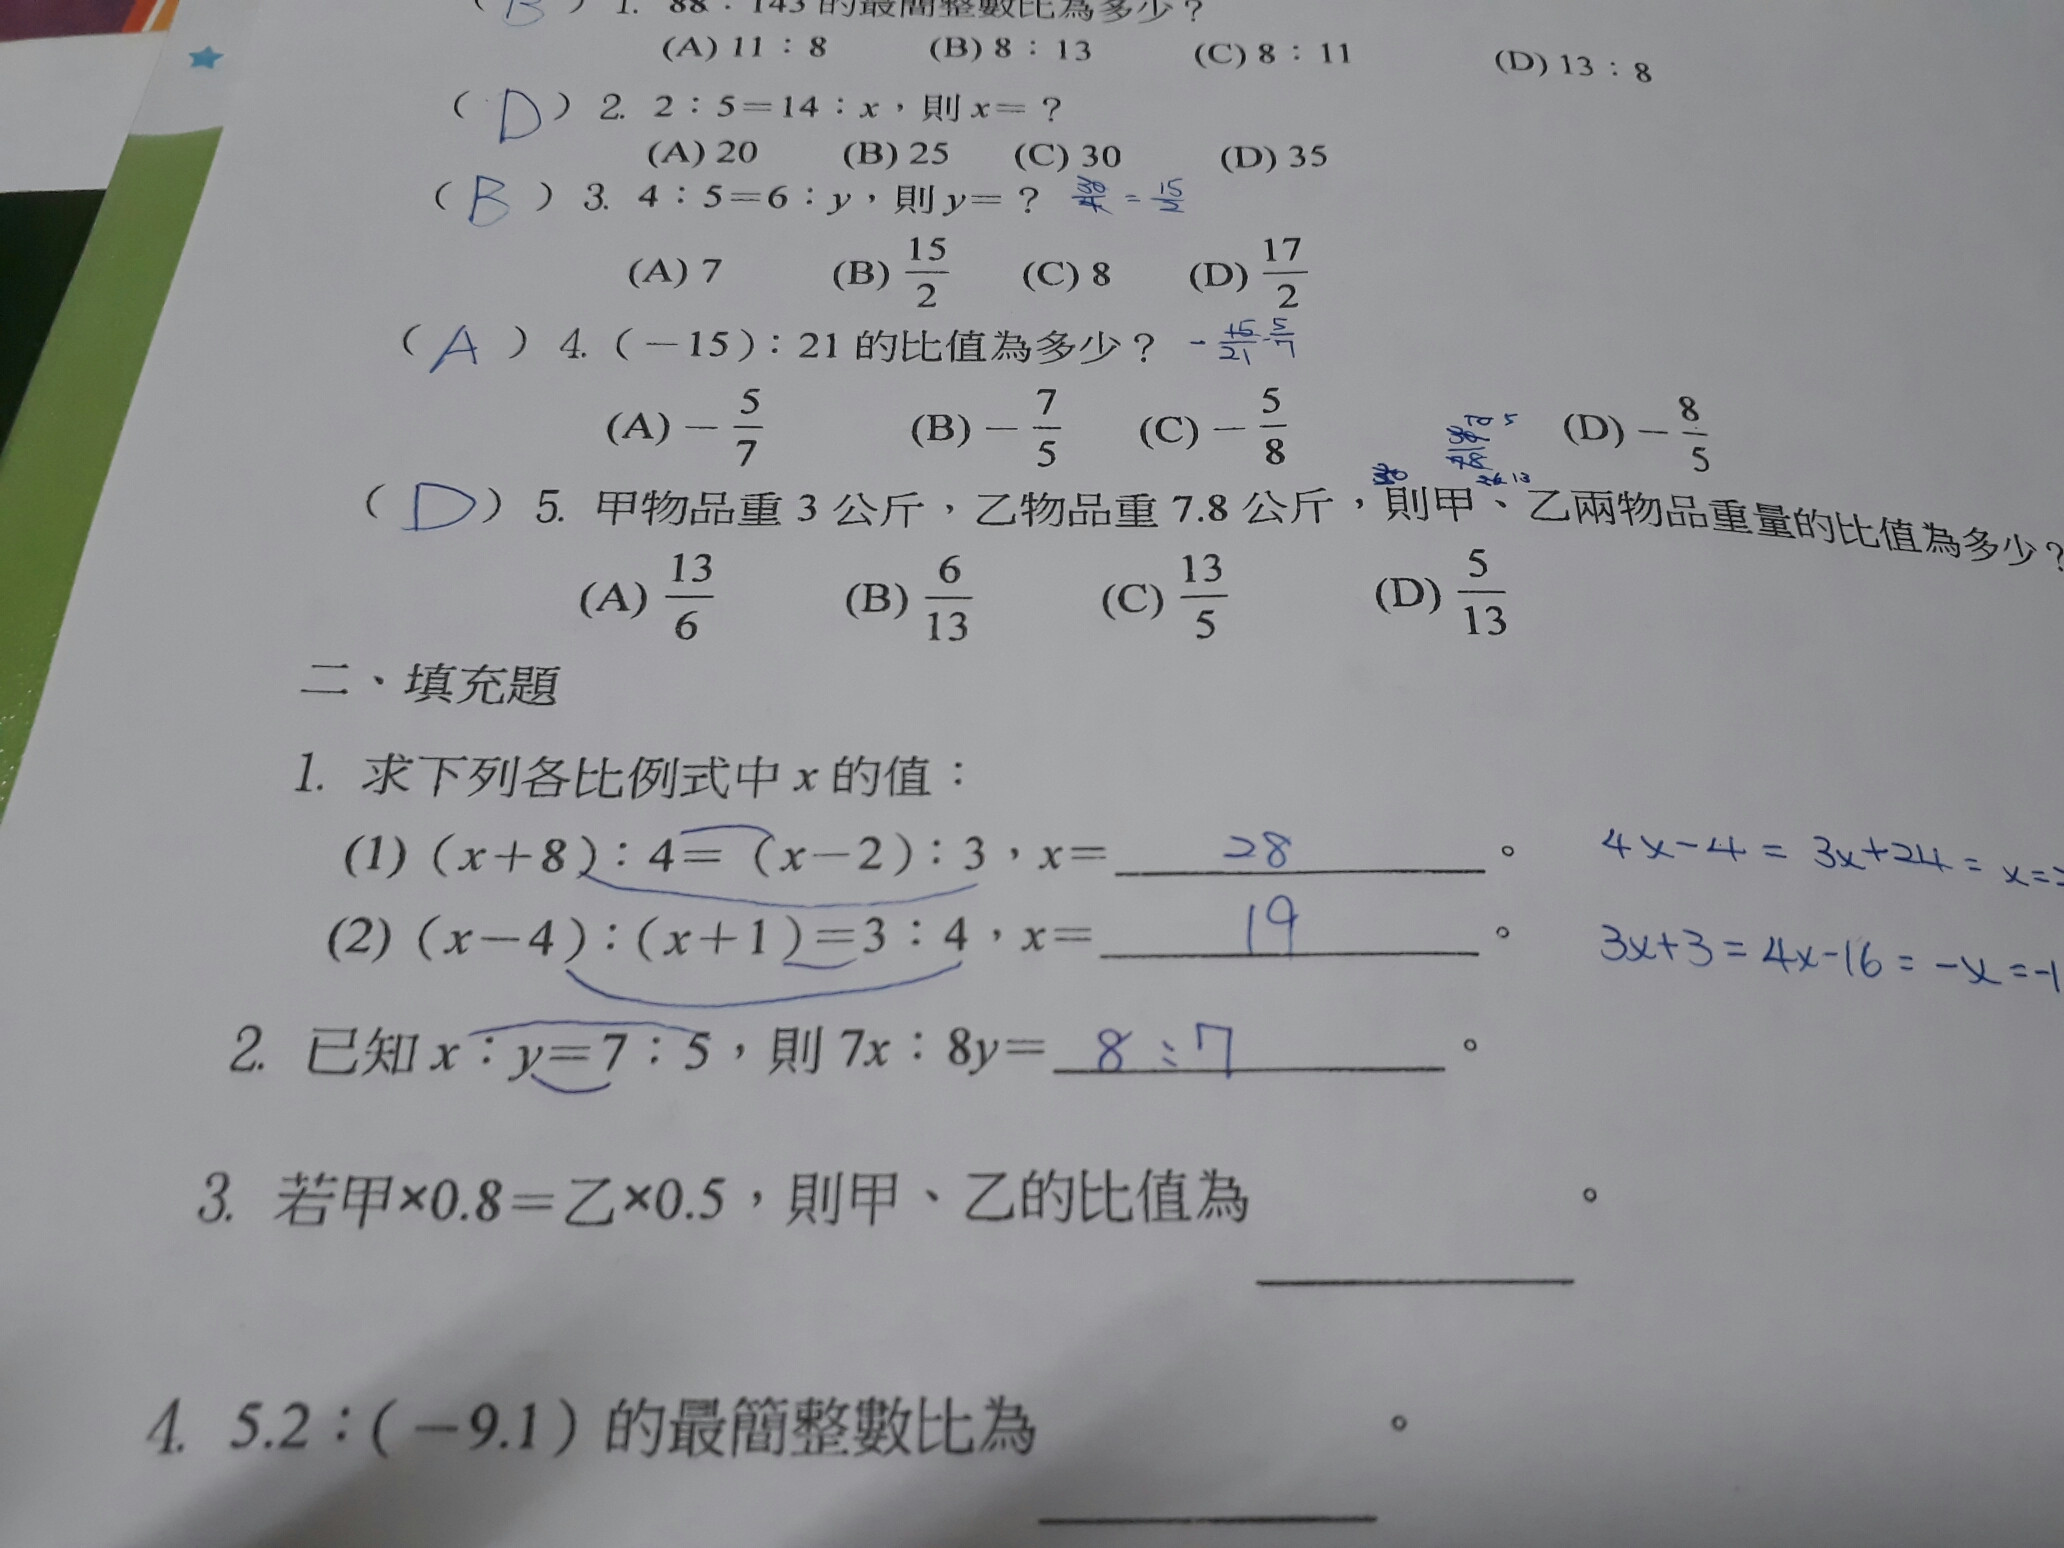 ( B ) 1. 88：143 的最簡整數比為多少？
(A) 11：8 (B) 8：13 (C) 8：11 (D) 13：8
( D ) 2. 2：5＝14：x，則 x＝？
(A) 20 (B) 25 (C) 30 (D) 35
( B ) 3. 4：5＝6：y，則 y＝？ 30/4 = 15/2
(A) 7 (B) 15/2 (C) 8 (D) 17/2
( A ) 4. (－15)：21 的比值為多少？ - 15/21 5/7
(A)－5/7 (B)－7/5 (C)－5/8 (D)－8/5
( D ) 5. 甲物品重 3 公斤，乙物品重 7.8 公斤，則甲、乙兩物品重量的比值為多少？
(A) 13/6 (B) 6/13 (C) 13/5 (D) 5/13
二、填充題
1. 求下列各比例式中 x 的值：
(1) (x＋8)：4＝(x－2)：3，x＝ 28 。 4x-4 = 3x+24 = x=
(2) (x－4)：(x＋1)＝3：4，x＝ 19 。 3x+3 = 4x-16 = -x = -1
2. 已知 x：y＝7：5，則 7x：8y＝ 8：7 。
3. 若甲×0.8＝乙×0.5，則甲、乙的比值為 。
4. 5.2：(－9.1) 的最簡整數比為 。